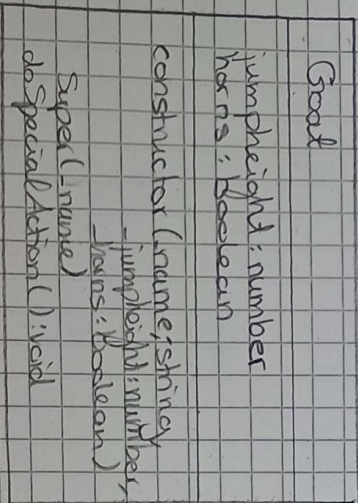 Goat
jumpheight : number
horns : Boolean
constructor (_name : string
_jumpheight : number,
_horns : Boolean)
Super(_name)
doSpecialAction() : void